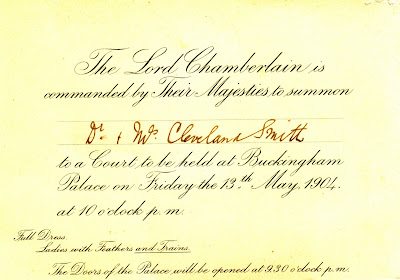 The Lord Chamberlain is
commanded by Their Majesties to summon
Dr. & Mrs. Cleveland Smith
to a Court, to be held at Buckingham
Palace on Friday the 13.th May, 1904.
at 10 o'clock p.m.
Full Dress.
Ladies with Feathers and Trains.
The Doors of the Palace will be opened at 9.30 o'clock p.m.